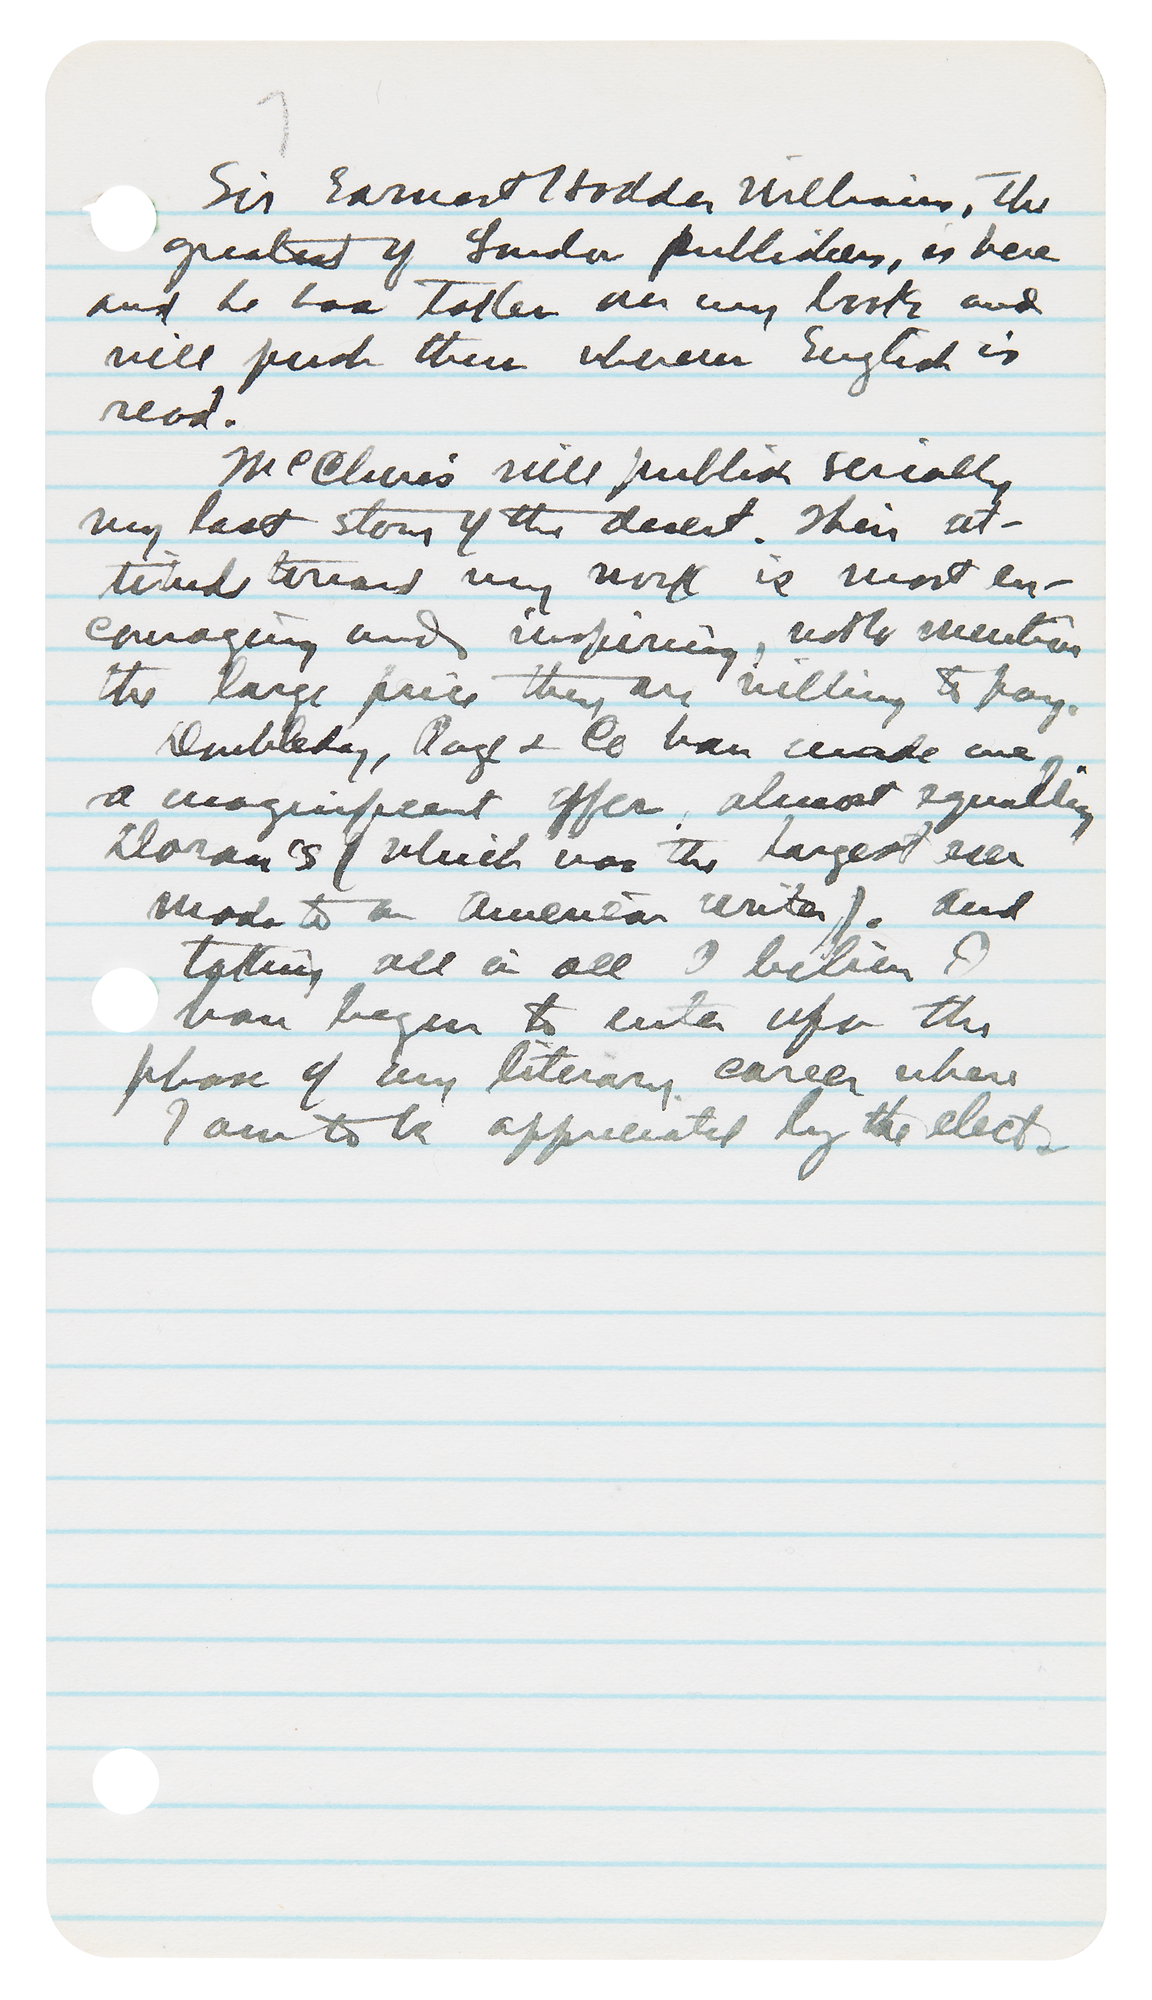 7
Sir Earnest Hodder Williams, the
greatest of London publishers, is here
and he has taken on my books and
will push them wherever English is
read.
McClure's will publish serially
my last story of the desert. Their at-
titude toward my work is most en-
couraging and inspiring, not to mention
the large price they are willing to pay.
Doubleday, Page & Co have made me
a magnificent offer, almost equalling
Doran's (which was the largest ever
made to an American writer). And
taking all in all I believe I
have begun to enter upon the
phase of my literary career where
I am to be appreciated by the elect.